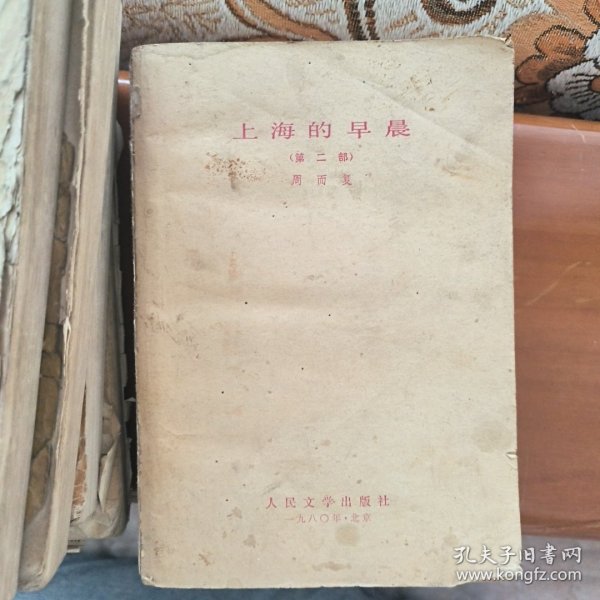 上海的早晨
（第二部）
周而复
人民文学出版社
一九八〇年·北京
孔夫子旧书网
www.kongfz.com